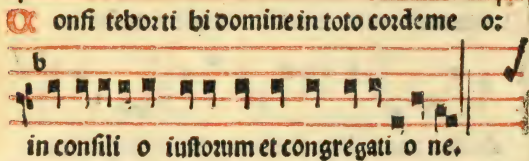 Confiteborti bi domine in toto corde me o:
in consili o iustorum et congregati o ne.